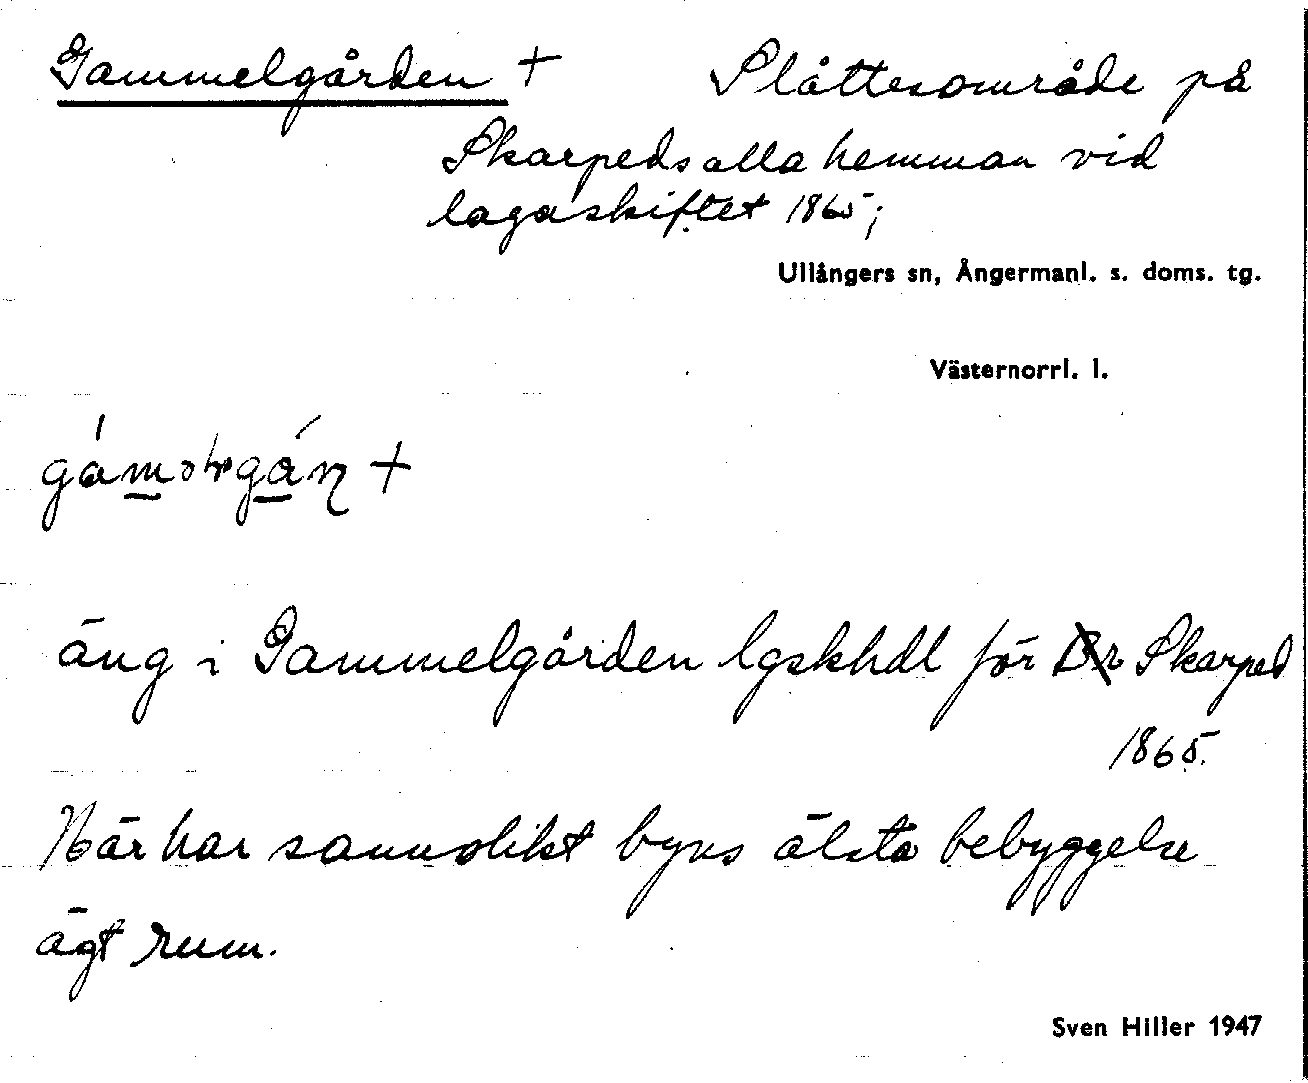 Gammelgården + Slåttesområde på
Skarpeds alla hemman vid
laga skiftet 1865;
Ullångers sn, Ångermanl. s. doms. tg.
Västernorrl. l.
äng i Gammelgården lgskhdl för Skarped
1865.
Här har sannolikt byns älsta bebyggelse
ägt rum.
Sven Hiller 1947